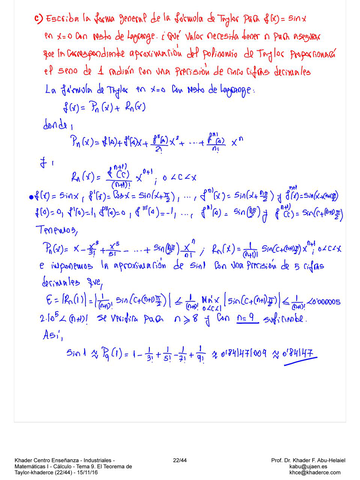 c) Escriba la forma general de la fórmula de Taylor para f(x)=sinx
en x=0 con resto de Lagrange. ¿Qué valor necesita tener n para asegurar
que la correspondiente aproximación del polinomio de Taylor proporcionará
el seno de 1 radián con una precisión de cinco cifras decimales
La fórmula de Taylor en x=0 con resto de Lagrange:
f(x) = Pn(x) + Rn(x)
donde,
Pn(x) = f(0) + f'(0)x + f''(0)/2! x² + ... + f^(n)(0)/n! x^n
y,
Rn(x) = f^(n+1)(c)/(n+1)! x^(n+1), 0<c<x
f(x) = sinx, f'(x) = cosx = sin(x+π/2), ..., f^(n)(x) = sin(x+nπ/2) y f^(n+1)(x) = sin(x+(n+1)π/2)
f(0)=0, f'(0)=1, f''(0)=0, f'''(0)=-1, ..., f^(n)(0) = sin(nπ/2) y f^(n+1)(c) = sin(c+(n+1)π/2)
Tenemos,
Pn(x) = x - x³/3! + x⁵/5! - ... + sin(nπ/2) x^n/n!; Rn(x) = 1/(n+1)! sin(c+(n+1)π/2) x^(n+1), 0<c<x
e imponemos la aproximación de sin1 con una precisión de 5 cifras
decimales que,
E = |Rn(1)| = |1/(n+1)! sin(c+(n+1)π/2)| ≤ 1/(n+1)! Máx 0<c<1 |sin(c+(n+1)π/2)| ≤ 1/(n+1)! < 0'000005
2·10⁵ < (n+1)! se verifica para n ≥ 8 y con n=9 suficiente.
Así,
sin1 ≈ P9(1) = 1 - 1/3! + 1/5! - 1/7! + 1/9! ≈ 0'841471009 ≈ 0'84147
Khader Centro Enseñanza - Industriales -
Matemáticas I - Cálculo - Tema 9. El Teorema de
Taylor-khaderce (22/44) - 15/11/16
22/44
Prof. Dr. Khader F. Abu-Helaiel
kabu@ujaen.es
khce@khaderce.com